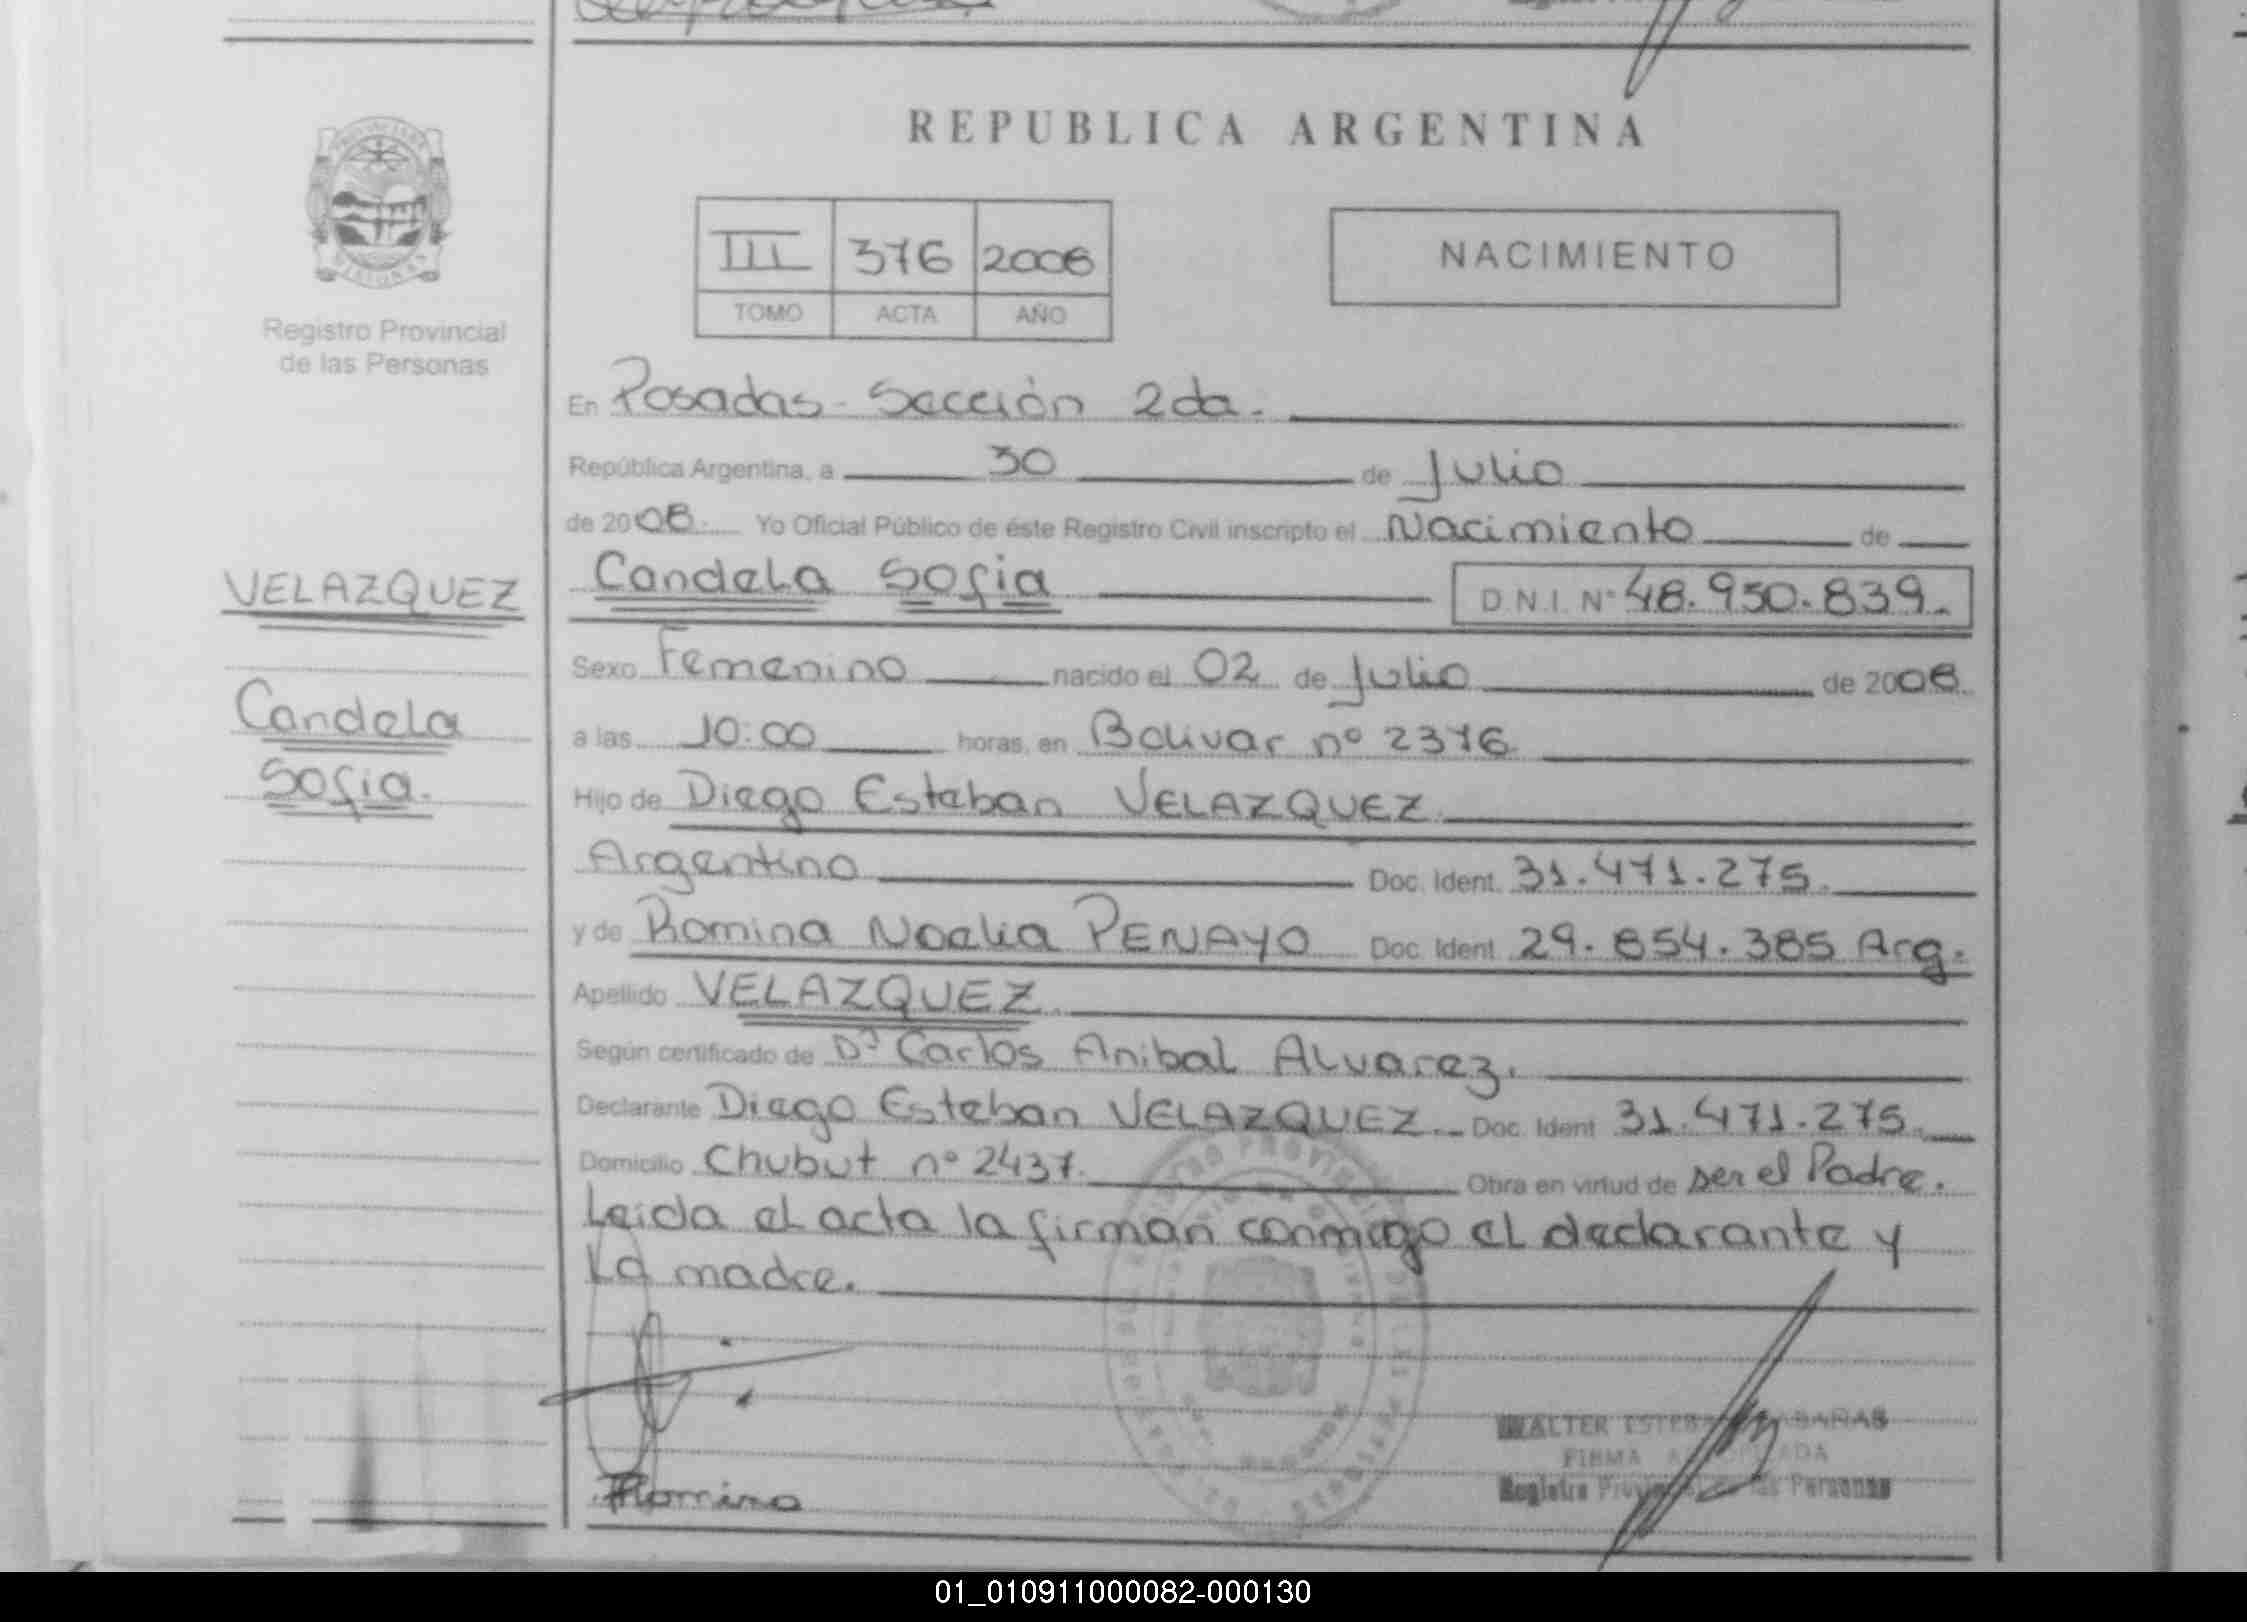 REPUBLICA ARGENTINA
III 376 2008
TOMO ACTA AÑO
NACIMIENTO
Registro Provincial
de las Personas
En Posadas - Sección 2da.
República Argentina, a 30 de Julio
de 2008. Yo Oficial Público de éste Registro Civil inscripto el Nacimiento de
VELAZQUEZ
Candela
Sofia.
Candela Sofia D.N.I. Nº 48.950.839.
Sexo Femenino nacido el 02 de Julio de 2008.
a las 10:00 horas, en Bolivar nº 2376
Hijo de Diego Esteban VELAZQUEZ.
Argentino Doc. Ident. 31.471.275.
y de Romina Noelia PENAYO Doc. Ident. 29.854.385 Arg.
Apellido VELAZQUEZ.
Según certificado de Dr Carlos Anibal Alvarez.
Declarante Diego Esteban VELAZQUEZ. Doc. Ident 31.471.275.
Domicilio Chubut nº 2437. Obra en virtud de ser el Padre.
Leida el acta la firman conmigo el declarante y
La madre.
WALTER
FIRMA
Registro Provincial de las Personas
Romina
01_010911000082-000130